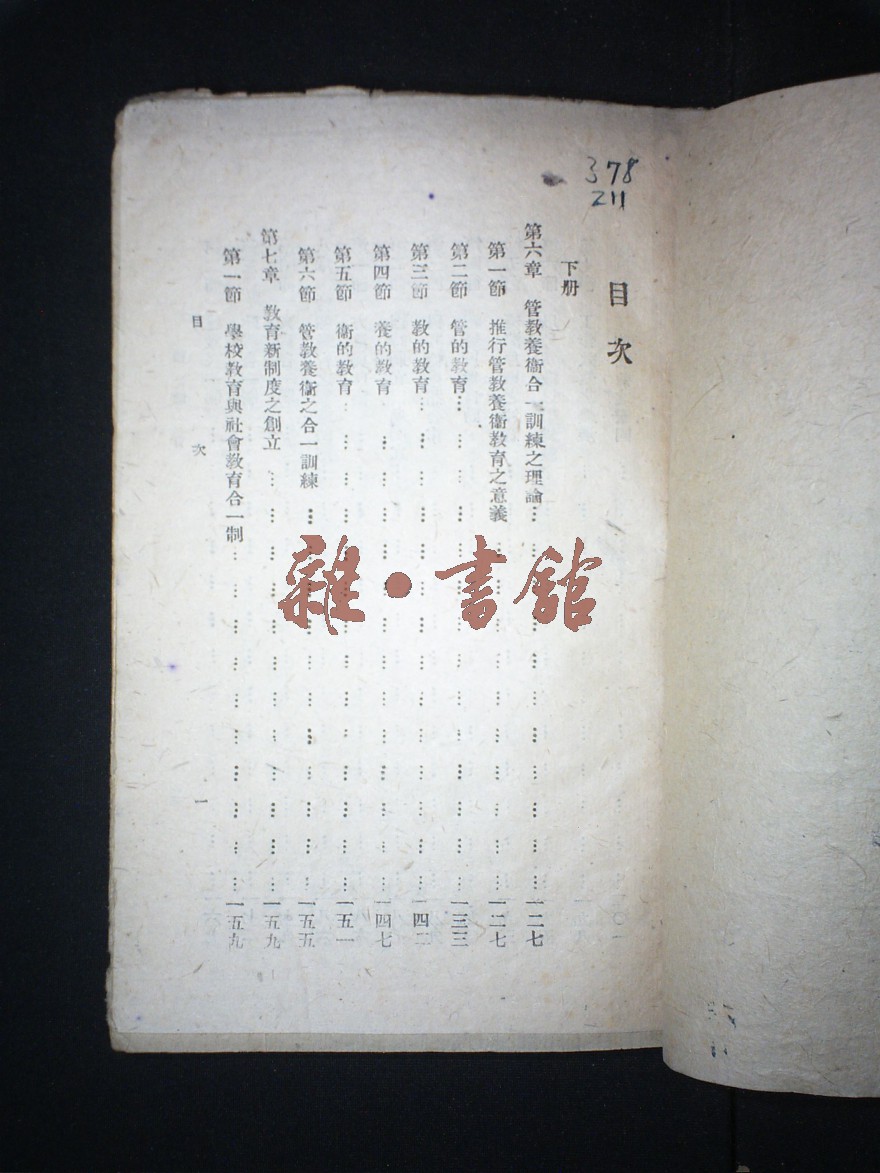 378
211
目次
下册
第六章 管教養衞合一訓練之理論……一二七
第一節 推行管教養衞教育之意義……一二七
第二節 管的教育……一三三
第三節 教的教育……一四二
第四節 養的教育……一四七
第五節 衞的教育……一五一
第六節 管教養衞之合一訓練……一五五
第七章 教育新制度之創立……一五九
第一節 學校教育與社會教育合一制……一五九
目次 一
雜·書館